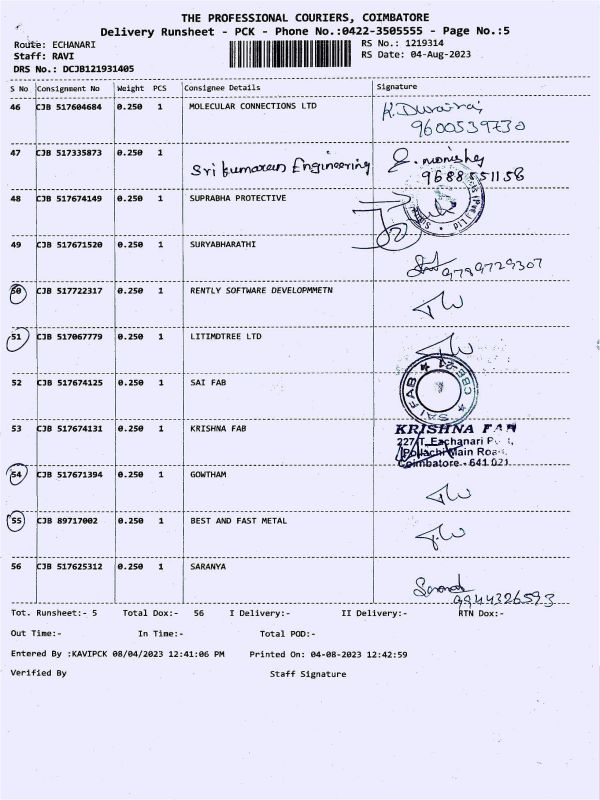 THE PROFESSIONAL COURIERS, COIMBATORE
Delivery Runsheet - PCK - Phone No.:0422-3505555 - Page No.:5
Route: ECHANARI RS No.: 1219314
Staff: RAVI RS Date: 04-Aug-2023
DRS No.: DCJB121931405
S No Consignment No Weight PCS Consignee Details Signature
46 CJB 517604684 0.250 1 MOLECULAR CONNECTIONS LTD K. Durairaj
9600539730
47 CJB 517335873 0.250 1 Sri kumaran Engineering
9688551156
48 CJB 517674149 0.250 1 SUPRABHA PROTECTIVE
49 CJB 517671520 0.250 1 SURYABHARATHI
9789729307
50 CJB 517722317 0.250 1 RENTLY SOFTWARE DEVELOPMMETN
51 CJB 517067779 0.250 1 LITIMDTREE LTD
52 CJB 517674125 0.250 1 SAI FAB SAI FAB ★ CBE-21 ★
53 CJB 517674131 0.250 1 KRISHNA FAB KRISHNA FAB
227/T, Eachanari
Pollachi Main Road,
Coimbatore - 641 021
54 CJB 517671394 0.250 1 GOWTHAM
55 CJB 89717002 0.250 1 BEST AND FAST METAL
56 CJB 517625312 0.250 1 SARANYA
9944326593
Tot. Runsheet:- 5 Total Dox:- 56 I Delivery:- II Delivery:- RTN Dox:-
Out Time:- In Time:- Total POD:-
Entered By :KAVIPCK 08/04/2023 12:41:06 PM Printed On: 04-08-2023 12:42:59
Verified By Staff Signature